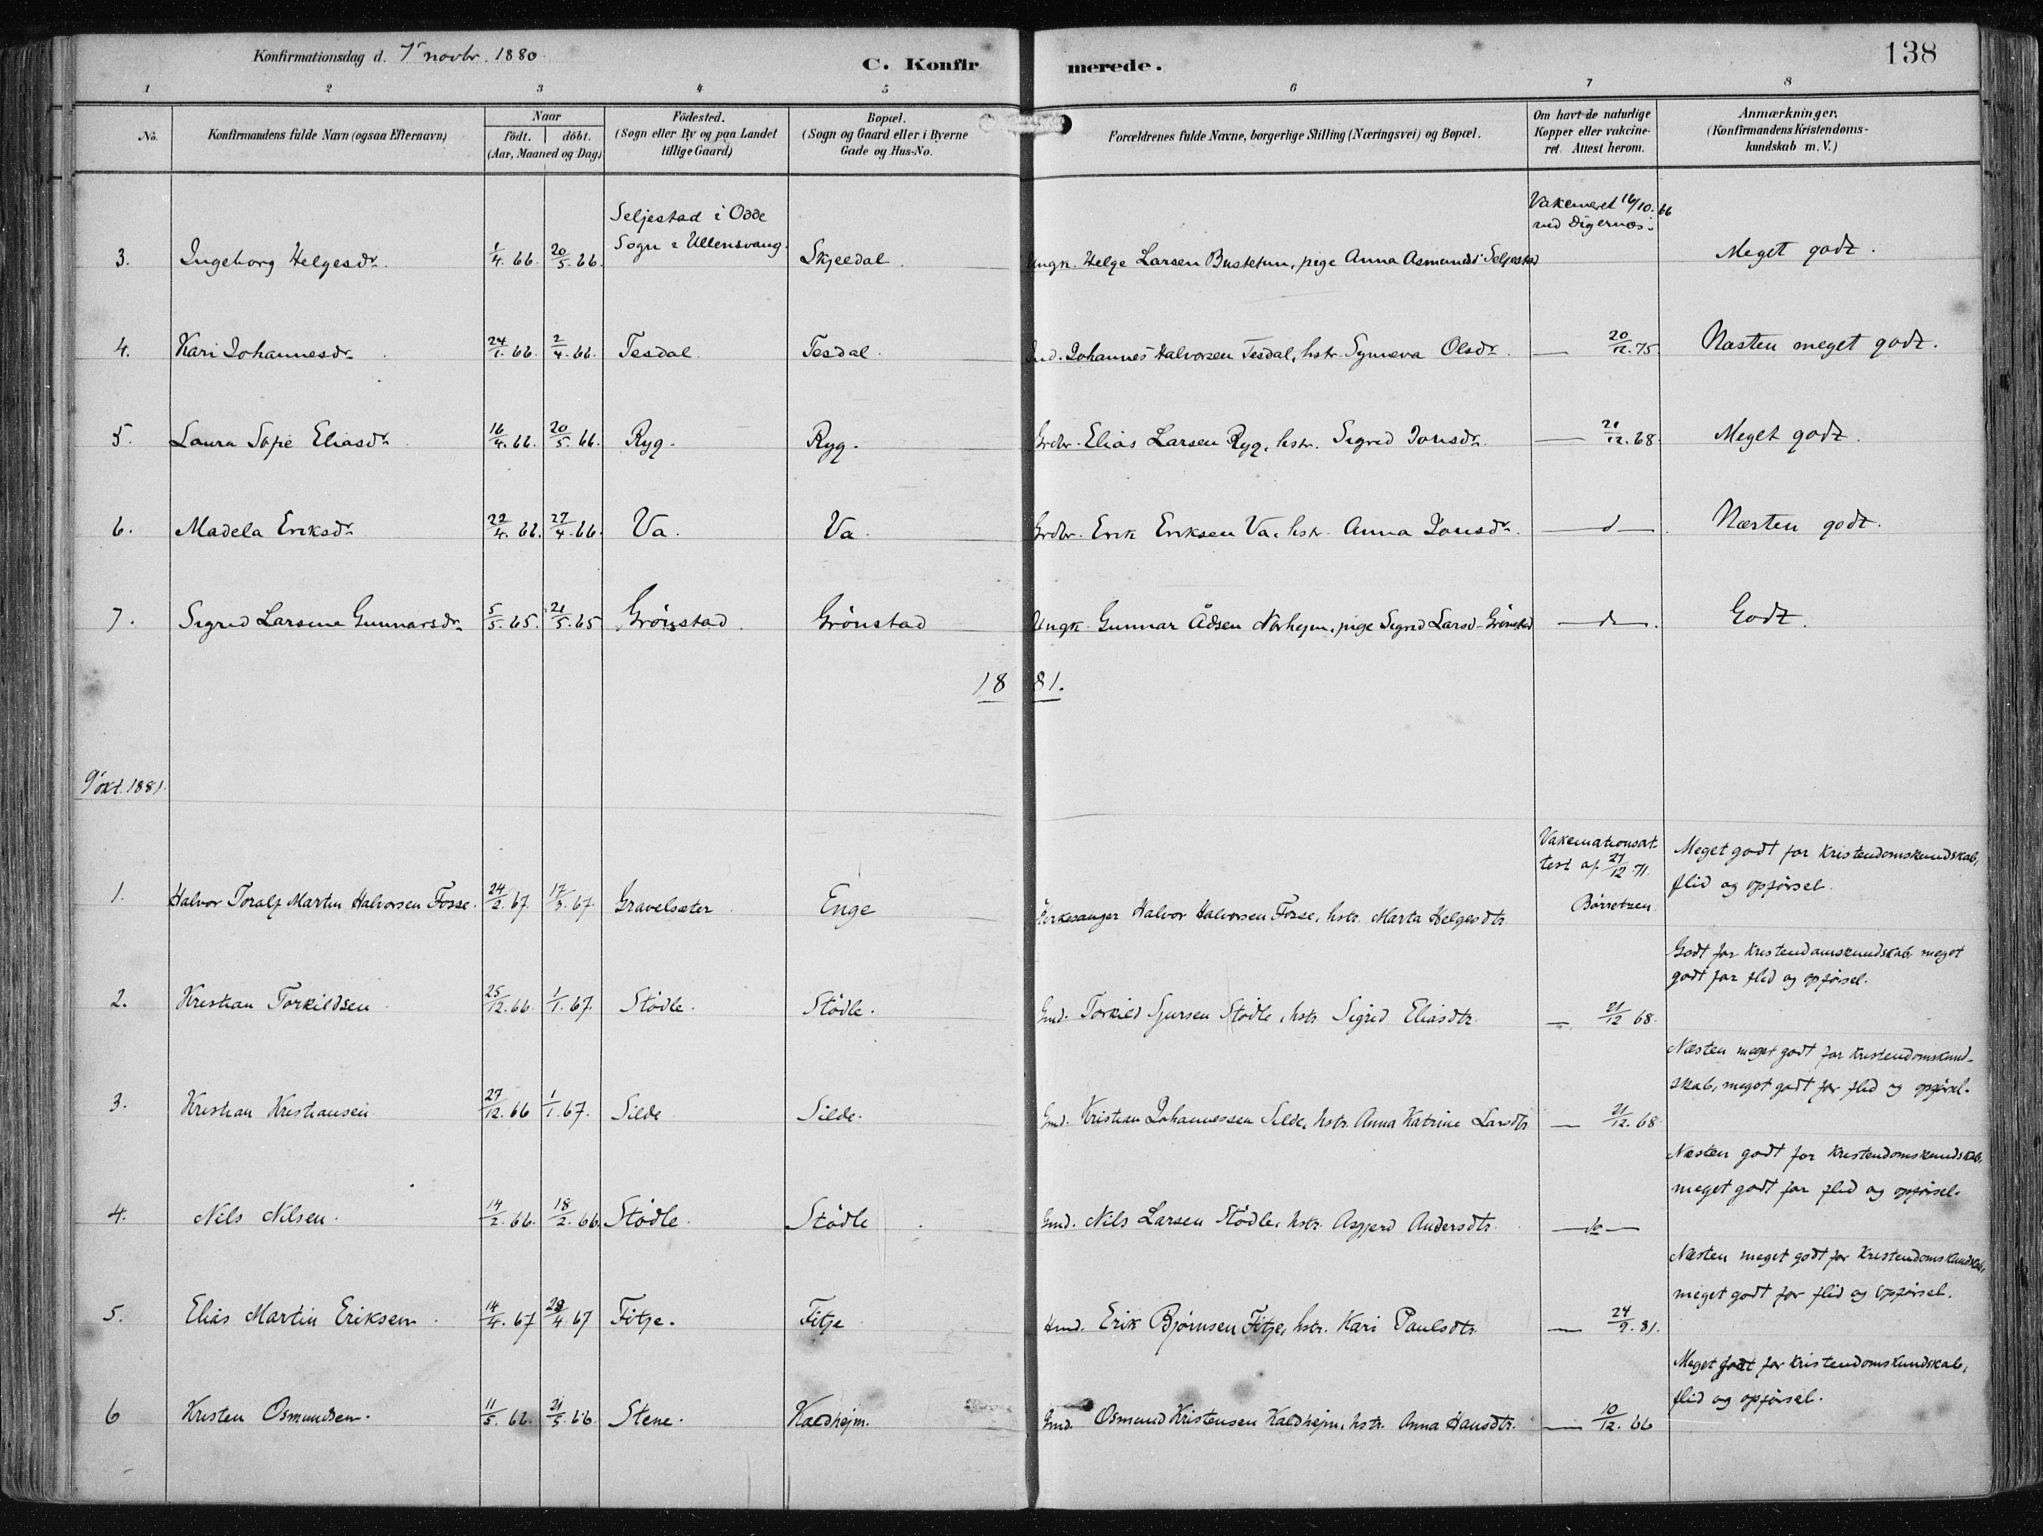 Konfirmationsdag d. 7' novbr. 1880.
C. Konfirmerede.
138
1 2 3 4 5 6 7 8
No.
Konfirmandens fulde Navn (ogsaa Efternavn)
Naar
födt. döbt.
(Aar, Maaned og Dag)
Födested.
(Sogn eller By og paa Landet
tillige Gaard)
Bopæl.
(Sogn og Gaard eller i Byerne
Gade og Hus-No.
Forældrenes fulde Navne, borgerlige Stilling (Næringsvei) og Bopæl.
Om havt de naturlige
Kopper eller vakcine-
ret. Attest herom.
Anmærkninger.
(Konfirmandens Kristendoms-
kundskab m. V.)
Seljestad i Odde
Sogn i Ullensvang.
Vakcineret 16/10.66
ved Digernæs.
3. Ingeborg Helgesdr. 1/4.66. 20/5.66. Skjeldal. Ungk. Helge Larsen Busktun, pige Anna Asmundsd. Seljestad Meget godt.
4. Kari Johannesdr. 24/1.66. 2/4.66. Tesdal. Tesdal. Ind. Johannes Halvorsen Tesdal, hstr. Synneva Olsdr. — 20/12.75. Næsten meget godt.
5. Laura Sofie Eliasdr. 16/4.66. 20/5.66. Ryg. Ryg. Grdbr. Elias Larsen Ryg, hstr. Sigrid Jonsdr. — 21/12.68. Meget godt.
6. Madela Eriksdr. 22/4.66. 27/4.66. Va. Va. Grdbr. Erik Eriksen Va, hstr. Anna Jonsdr. —d— Næsten godt.
7. Sigrid Larsine Gunnarsdr. 5/5.65. 21/5.65 Grönstad. Grönstad Ungk. Gunnar Ådsen Norhejm, pige Sigrid Larsd. Grönstad —d— Godt.
1881.
9' okt. 1881.
Vakcinationsat-
test af 27/12.71.
Börretzen
Meget godt for Kristendomskundskab,
flid og opførsel.
1. Halvor Toralf Martin Halvorsen Fosse. 24/2.67. 17/3.67. Gravelsæter. Enge Kirkesanger Halvor Halvorsen Fosse, hstr. Marta Helgesdtr.
Godt for Kristendomskundskab, meget
godt for flid og opførsel.
2. Kristian Torkildsen 25/12.66. 1/1.67. Stödle. Stödle. Gmd. Torkild Sjursen Stödle, hstr. Sigrid Eliasdtr. — 21/12 68.
Næsten meget godt for Kristendomskund-
skab, meget godt for flid og opførsel.
3. Kristian Kristiansen 27/12.66 1/1.67. Silde Silde. Gmd. Kristian Johannessen Silde, hstr. Anna Katrine Larsdtr. — 21/12.68.
Næsten godt for Kristendomskundskab,
meget godt for flid og opførsel.
4. Nils Nilsen. 14/2.66. 18/2.66. Stödle. Stödle Gmd. Nils Larsen Stödle, hstr. Asgjerd Andersdtr. —do—
Næsten meget godt for Kristendomskundskab,
meget godt for flid og opførsel.
5. Elias Martin Eriksen. 14/4.67 28/4.67 Fitje. Fitje Hmd. Erik Bjørnsen Fitje, hstr. Kari Paulsdtr. — 24/9.81.
Meget godt for Kristendomskundskab,
flid og opførsel.
6 Kristen Osmundsen. 11/5.66. 21/5.66 Stene. Kaldhejm. Gmd. Osmund Kristensen Kaldhejm, hstr. Anna Hansdtr. — 10/12.66